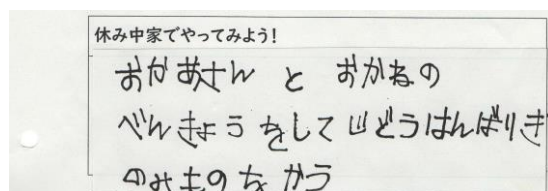 休み中家でやってみよう!
おかあさん と おかねの
べんきょうをして じどうはんばりき
のみものを かう